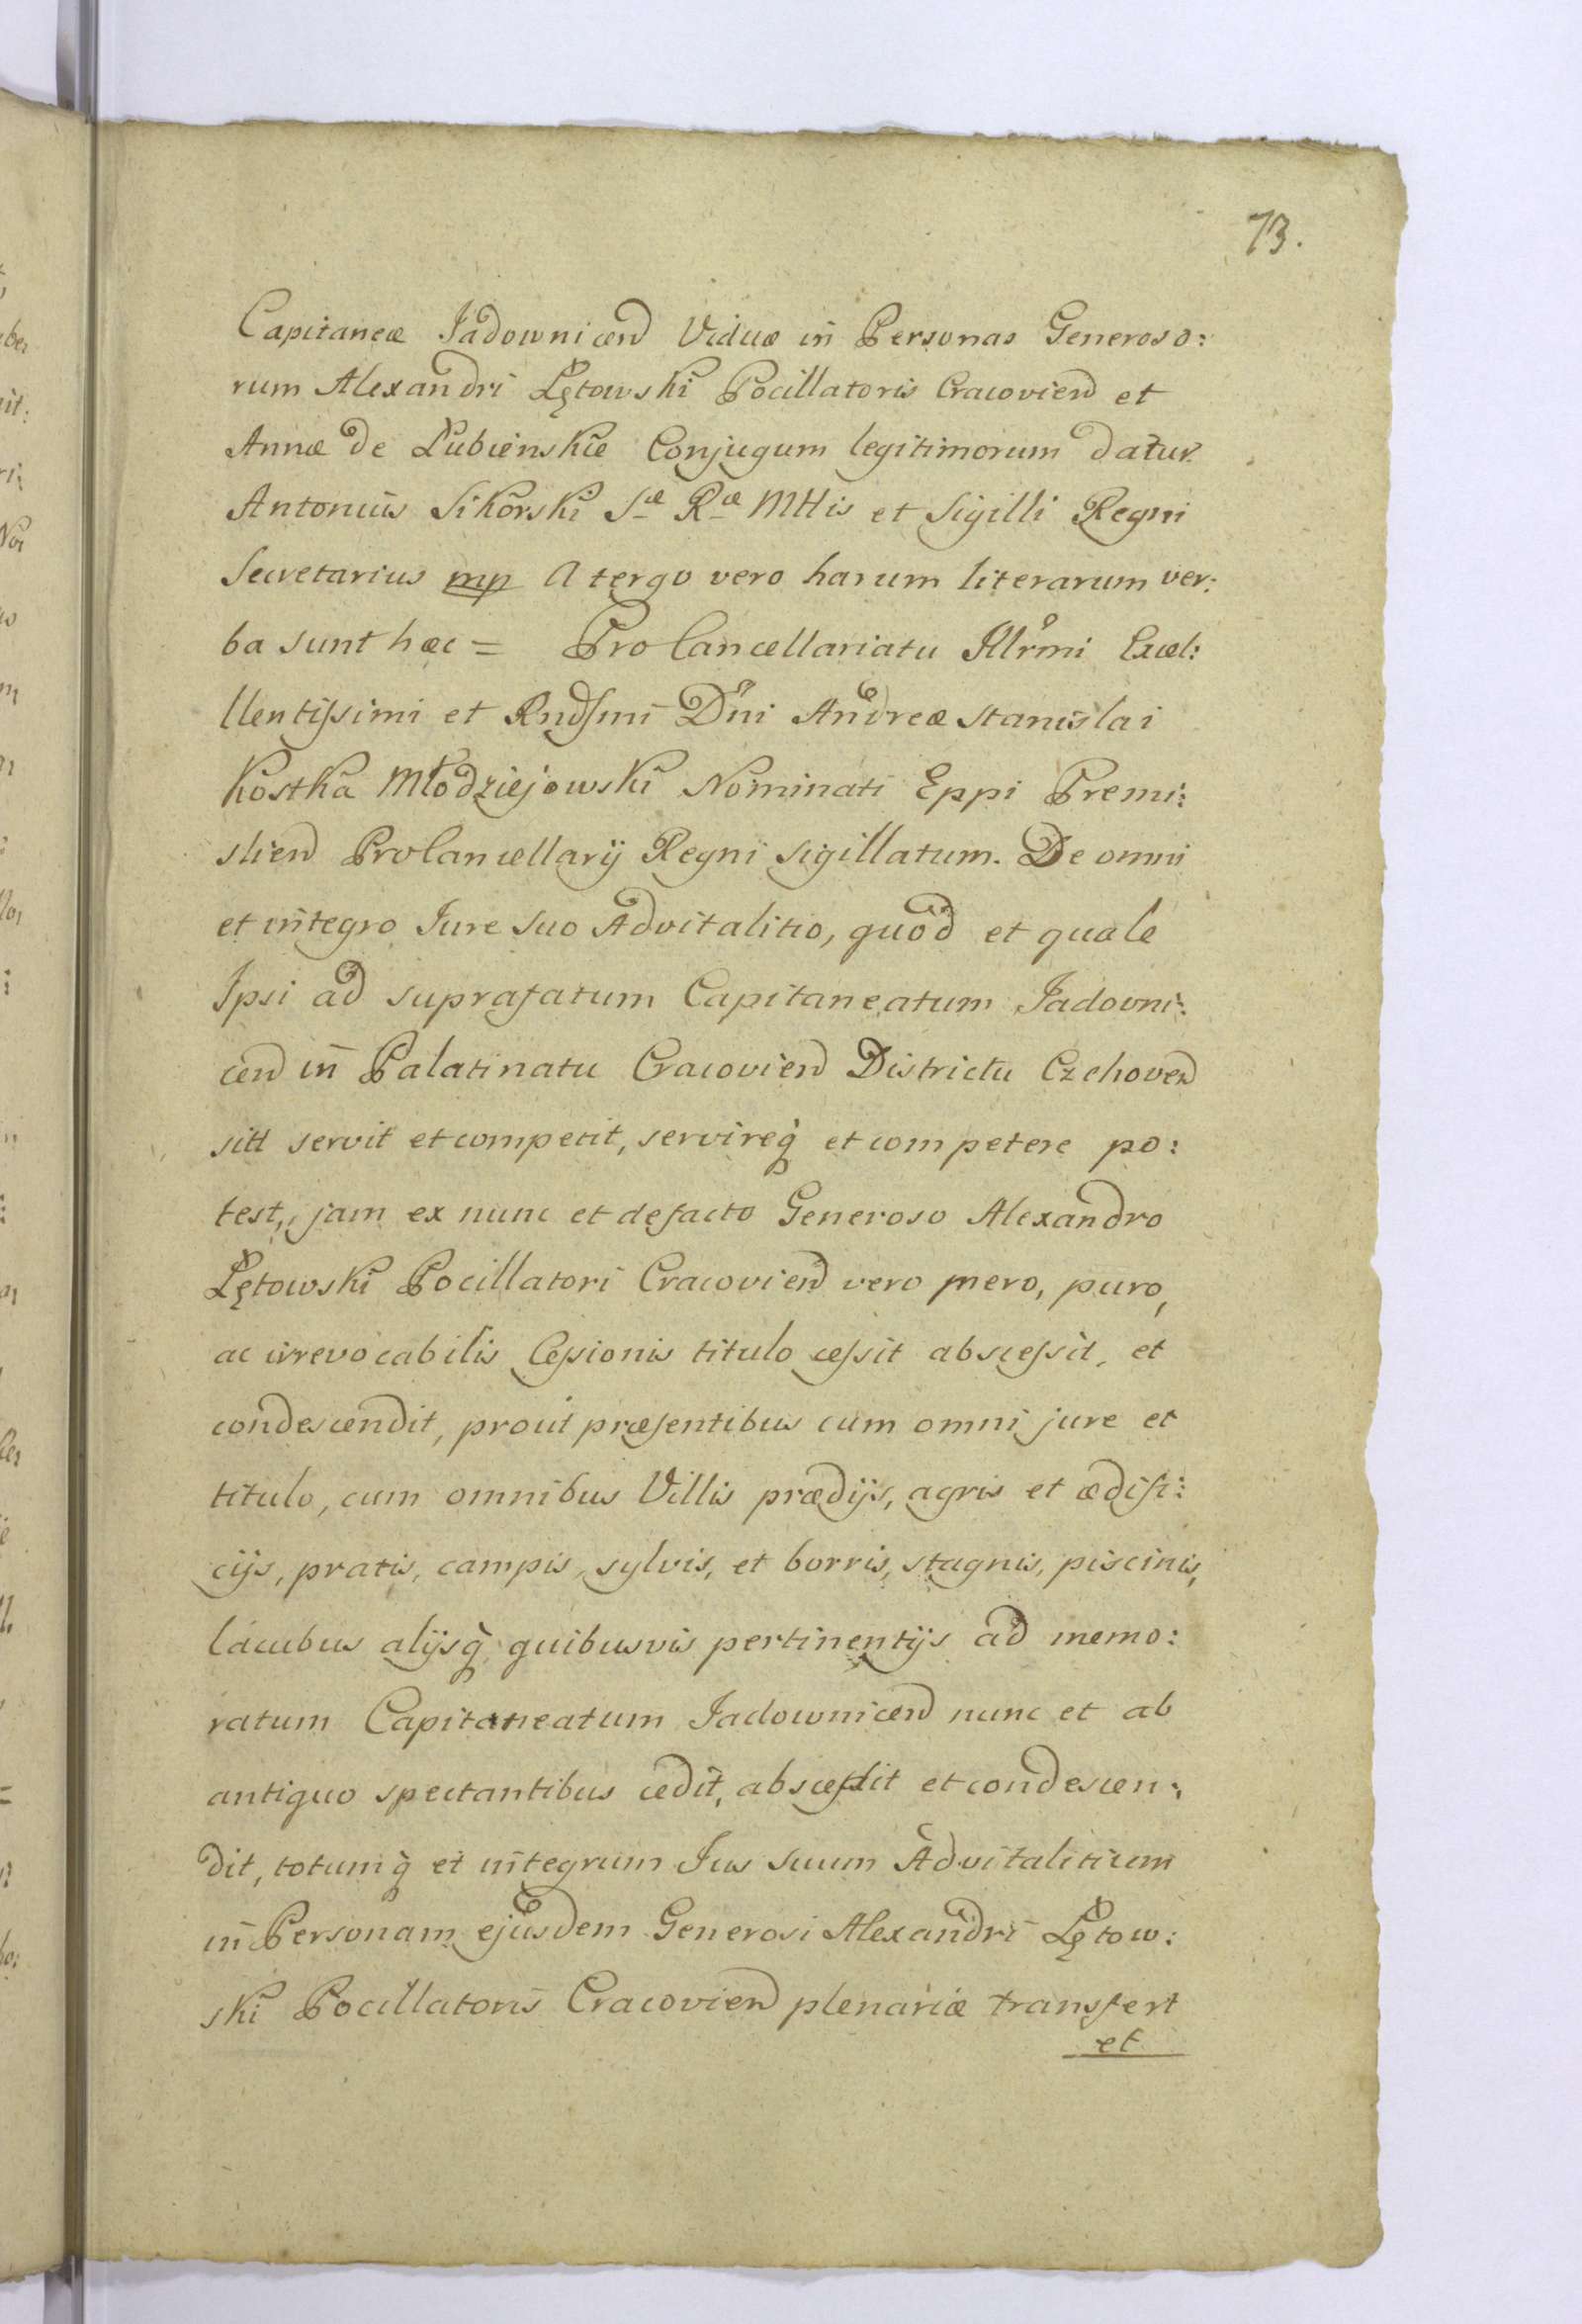 73.
Capitaneæ Jadownicen Viduæ in Personas Generoso:
rum Alexandri Łętowski Pocillatoris Cracovien et
Annæ de Łubienskie Conjugum legitimorum datur.
Antonius Sikorski Sæ Ræ Mttis et Sigilli Regni
Secretarius mp A tergo vero harum literarum ver:
ba sunt hæc = Pro Cancellariatu Illrmi Excel:
llentissimi et Rndssmi Dni Andreæ Stanislai
Kostka Młodziejowski Nominati Eppi Premi:
slien ProCancellarij Regni sigillatum. De omni
et integro Jure suo Advitalitio, quod et quale
Ipsi ad suprafatum Capitaneatum Jadovni:
cen in Palatinatu Cracovien Districtu Czchoven
sitt servit et competit, servireq̀ et competere po:
test, jam ex nunc et defacto Generoso Alexandro
Łętowski Pocillatori Cracovien vero mero, puro,
ac irrevocabilis Cessionis titulo cessit abscessit, et
condescendit, prout præsentibus cum omni jure et
titulo, cum omnibus Villis prædijs, agris et ædifi:
cijs, pratis, campis, sylvis, et borris, stagnis, piscinis,
lacubus alijsq̀ quibusvis pertinentijs ad memo:
ratum Capitaneatum Jadownicen nunc et ab
antiquo spectantibus cedit, abscessit et condescen:
dit, totumq̀ et integrum Jus suum Advitalitium
in Personam ejusdem Generosi Alexandri Łętow:
ski Pocillatoris Cracovien plenariæ transfert
et